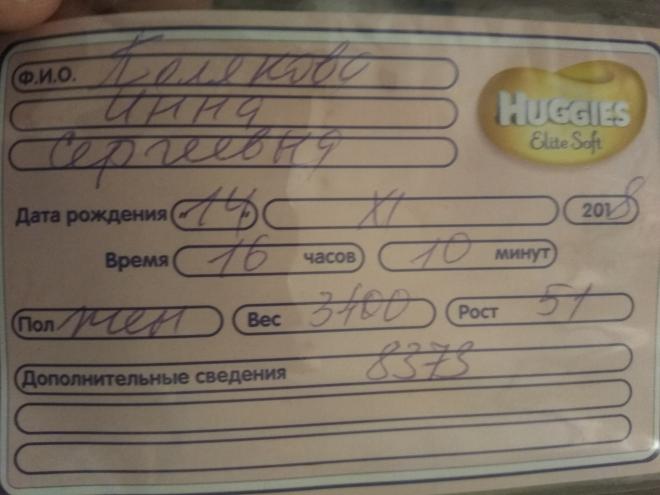 Ф.И.О. Полякова
Инна
Сергеевна
HUGGIES
Elite Soft
Дата рождения «14» XI 2018
Время 16 часов 10 минут
Пол жен Вес 3400 Рост 51
Дополнительные сведения 8373